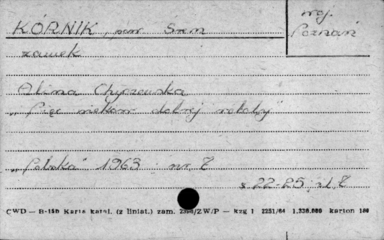 KÓRNIK, pow. Śrem
woj. Poznań
zamek
Alina Chyczewska
"Pięć wieków dobrej roboty"
"Polska" 1963 nr 8
s. 22-25 il. 8
CWD — B-15b Karta katal. (z liniat.) zam. /ZW/P — kzg 1 2251/64 1.536.000 karton 180